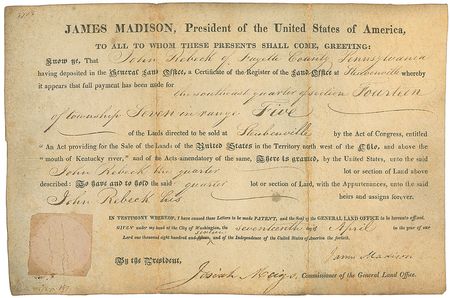 JAMES MADISON, President of the United States of America,
TO ALL TO WHOM THESE PRESENTS SHALL COME, GREETING:
Know ye, That John Robeck of Fayette County Pennsylvania
having deposited in the General Land Office, a Certificate of the Register of the Land Office at Steubenville whereby
it appears that full payment has been made for
the southeast quarter of section Fourteen
of township Seven in range Five
of the Lands directed to be sold at Steubenville by the Act of Congress, entitled
"An Act providing for the Sale of the Lands of the United States in the Territory north west of the Ohio, and above the
"mouth of Kentucky river," and of the Acts amendatory of the same, There is granted, by the United States, unto the said
John Robeck the quarter lot or section of Land above
described: To have and to hold the said quarter lot or section of Land, with the Appurtenances, unto the said
John Robeck his heirs and assigns forever.
IN TESTIMONY WHEREOF, I have caused these Letters to be made PATENT, and the Seal of the GENERAL LAND OFFICE to be hereunto affixed.
GIVEN under my hand at the City of Washington, the seventeenth day of April in the year of our
Lord one thousand eight hundred and sixteen and of the Independence of the United States of America the fortieth.
By the President, James Madison
Josiah Meigs, Commissioner of the General Land Office.